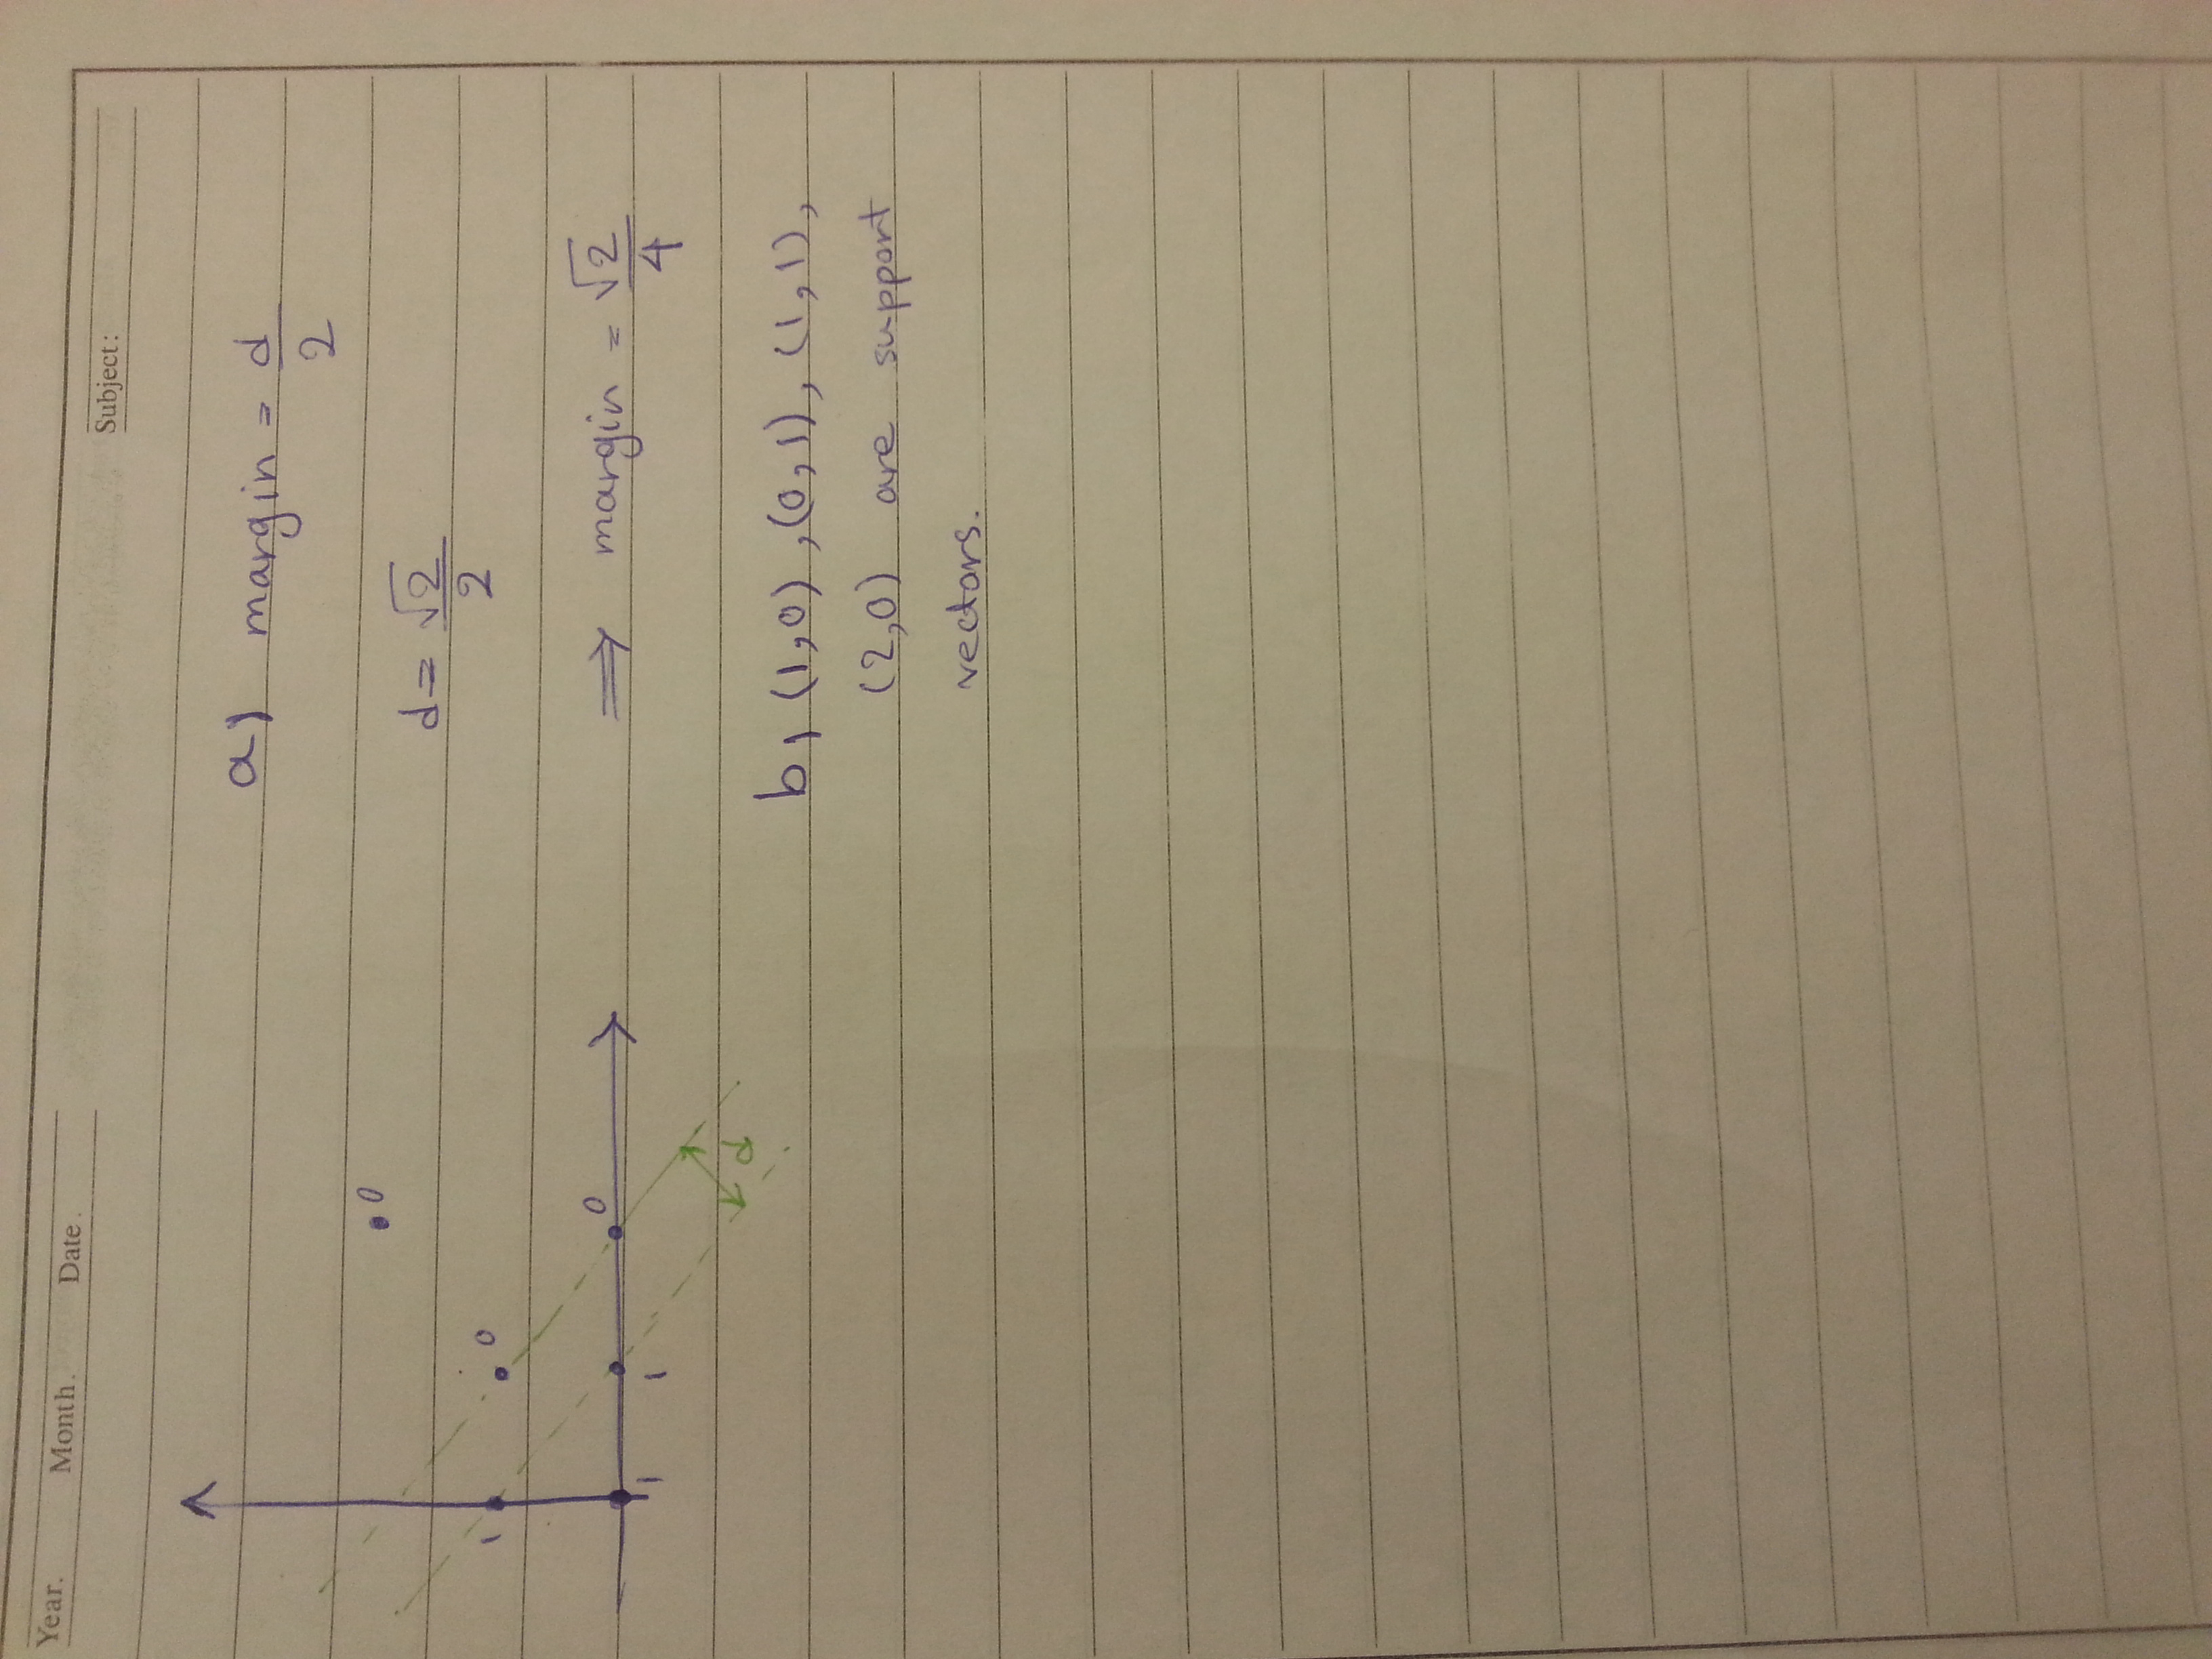 Year. Month. Date.
Subject:
a) margin = d/2
0
d = √2/2
1 0
0
1 1
⟹ margin = √2/4
d
b) (1,0), (0,1), (1,1),
(2,0) are support
vectors.